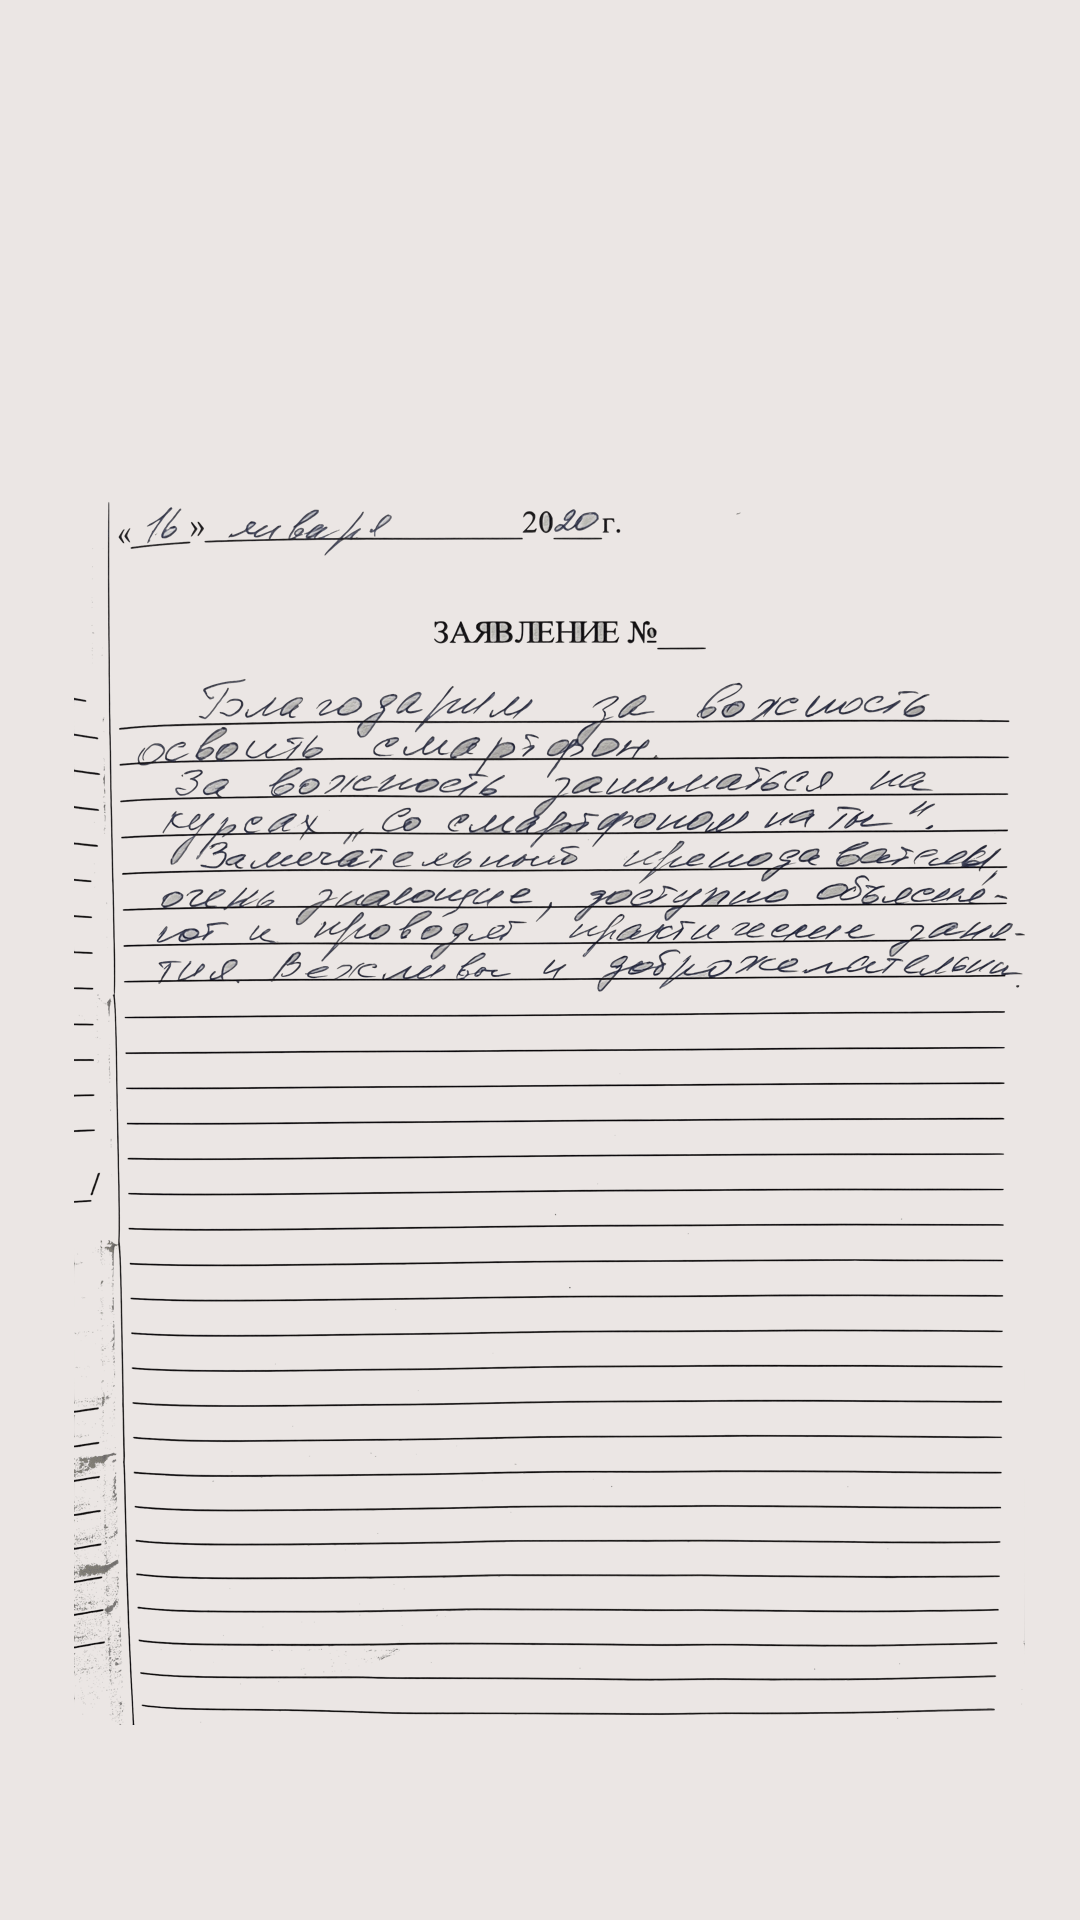 «16» января 2020 г.
ЗАЯВЛЕНИЕ №___
Благодарим за вожность
освоить смартфон.
За вожность заниматься на
курсах „Со смартфоном на ты".
Замечательный преподаватель,
очень знающие, доступно объясня-
ют и проводят практические заня-
тия. Вежливы и доброжелательны.